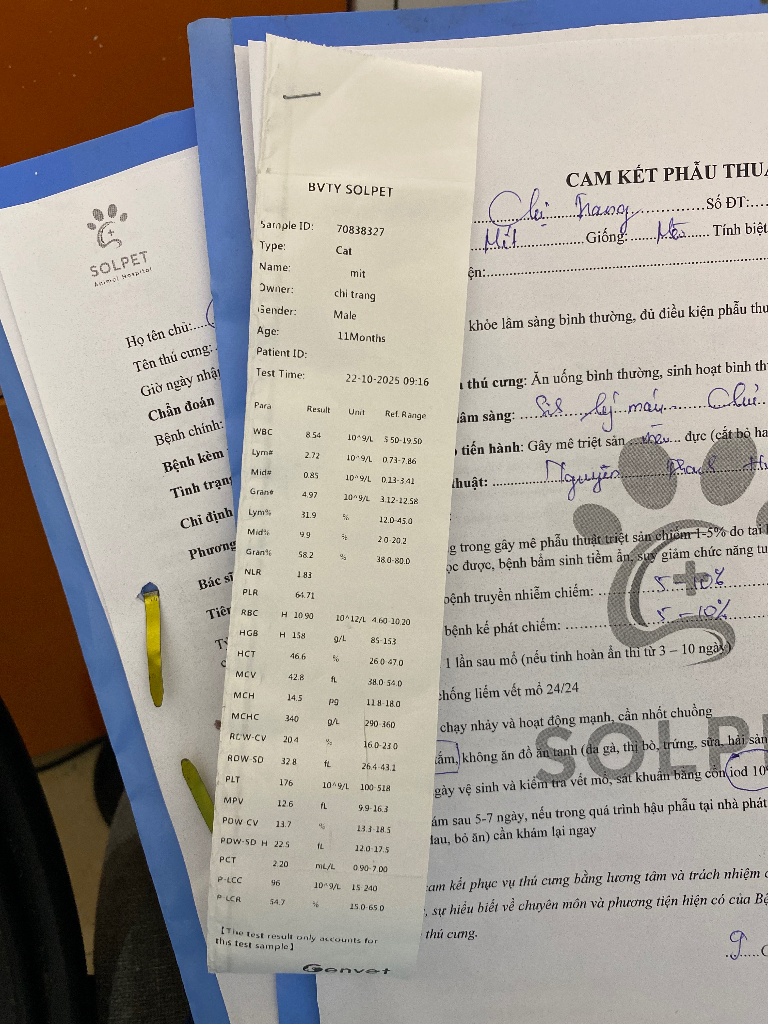 BVTY SOLPET
Sample ID: 70838327
Type: Cat
Name: mit
Owner: chi trang
Gender: Male
Age: 11Months
Patient ID:
Test Time: 22-10-2025 09:16
Para Result Unit Ref. Range
WBC 8.54 10^9/L 5.50-19.50
Lym# 2.72 10^9/L 0.73-7.86
Mid# 0.85 10^9/L 0.13-3.41
Gran# 4.97 10^9/L 3.12-12.58
Lym% 31.9 % 12.0-45.0
Mid% 9.9 % 2.0-20.2
Gran% 58.2 % 38.0-80.0
NLR 1.83
PLR 64.71
RBC H 10.90 10^12/L 4.60-10.20
HGB H 158 g/L 85-153
HCT 46.6 % 26.0-47.0
MCV 42.8 fL 38.0-54.0
MCH 14.5 pg 11.8-18.0
MCHC 340 g/L 290-360
RDW-CV 20.4 % 16.0-23.0
RDW-SD 32.8 fL 26.4-43.1
PLT 176 10^9/L 100-518
MPV 12.6 fL 9.9-16.3
PDW-CV 13.7 % 13.3-18.5
PDW-SD H 22.5 fL 12.0-17.5
PCT 2.20 mL/L 0.90-7.00
P-LCC 96 10^9/L 15-240
P-LCR 54.7 % 15.0-65.0
[The test result only accounts for
this test sample]
Genvet
SOLPET
Animal Hospital
Họ tên chủ:
Tên thú cưng:
Giờ ngày nhậ
Chẩn đoán
Bệnh chính:
Bệnh kèm
Tình trạng
Chỉ định
Phương
Bác sĩ
Tiên
CAM KẾT PHẪU THUẬ
Chị Trang Số ĐT:
Mít Giống: Mèo Tính biệt
ện:
khỏe lâm sàng bình thường, đủ điều kiện phẫu thu
thú cưng: Ăn uống bình thường, sinh hoạt bình th
lâm sàng: lý máu
tiến hành: Gây mê triệt sản đực (cắt bỏ ha
huật: Nguyễn
g trong gây mê phẫu thuật triệt sản chiếm 1-5% do tai
ọc được, bệnh bẩm sinh tiềm ẩn, suy giảm chức năng tu
bệnh truyền nhiễm chiếm: 5-10%
bệnh kế phát chiếm: 5-10%
1 lần sau mổ (nếu tinh hoàn ẩn thì từ 3 – 10 ngày)
chống liếm vết mổ 24/24
chạy nhảy và hoạt động mạnh, cần nhốt chuồng
tắm, không ăn đồ ăn tanh (da gà, thị bò, trứng, sữa, hải sản
gày vệ sinh và kiểm tra vết mổ, sát khuẩn bằng cồn iod 10%
ám sau 5-7 ngày, nếu trong quá trình hậu phẫu tại nhà phát
đau, bỏ ăn) cần khám lại ngay
am kết phục vụ thú cưng bằng lương tâm và trách nhiệm
, sự hiểu biết về chuyên môn và phương tiện hiện có của Bệ
thú cưng.
SOLP